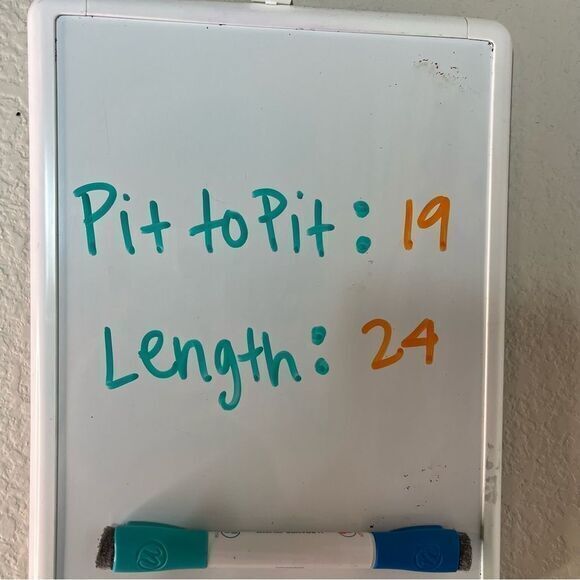 Pit to Pit: 19
Length: 24